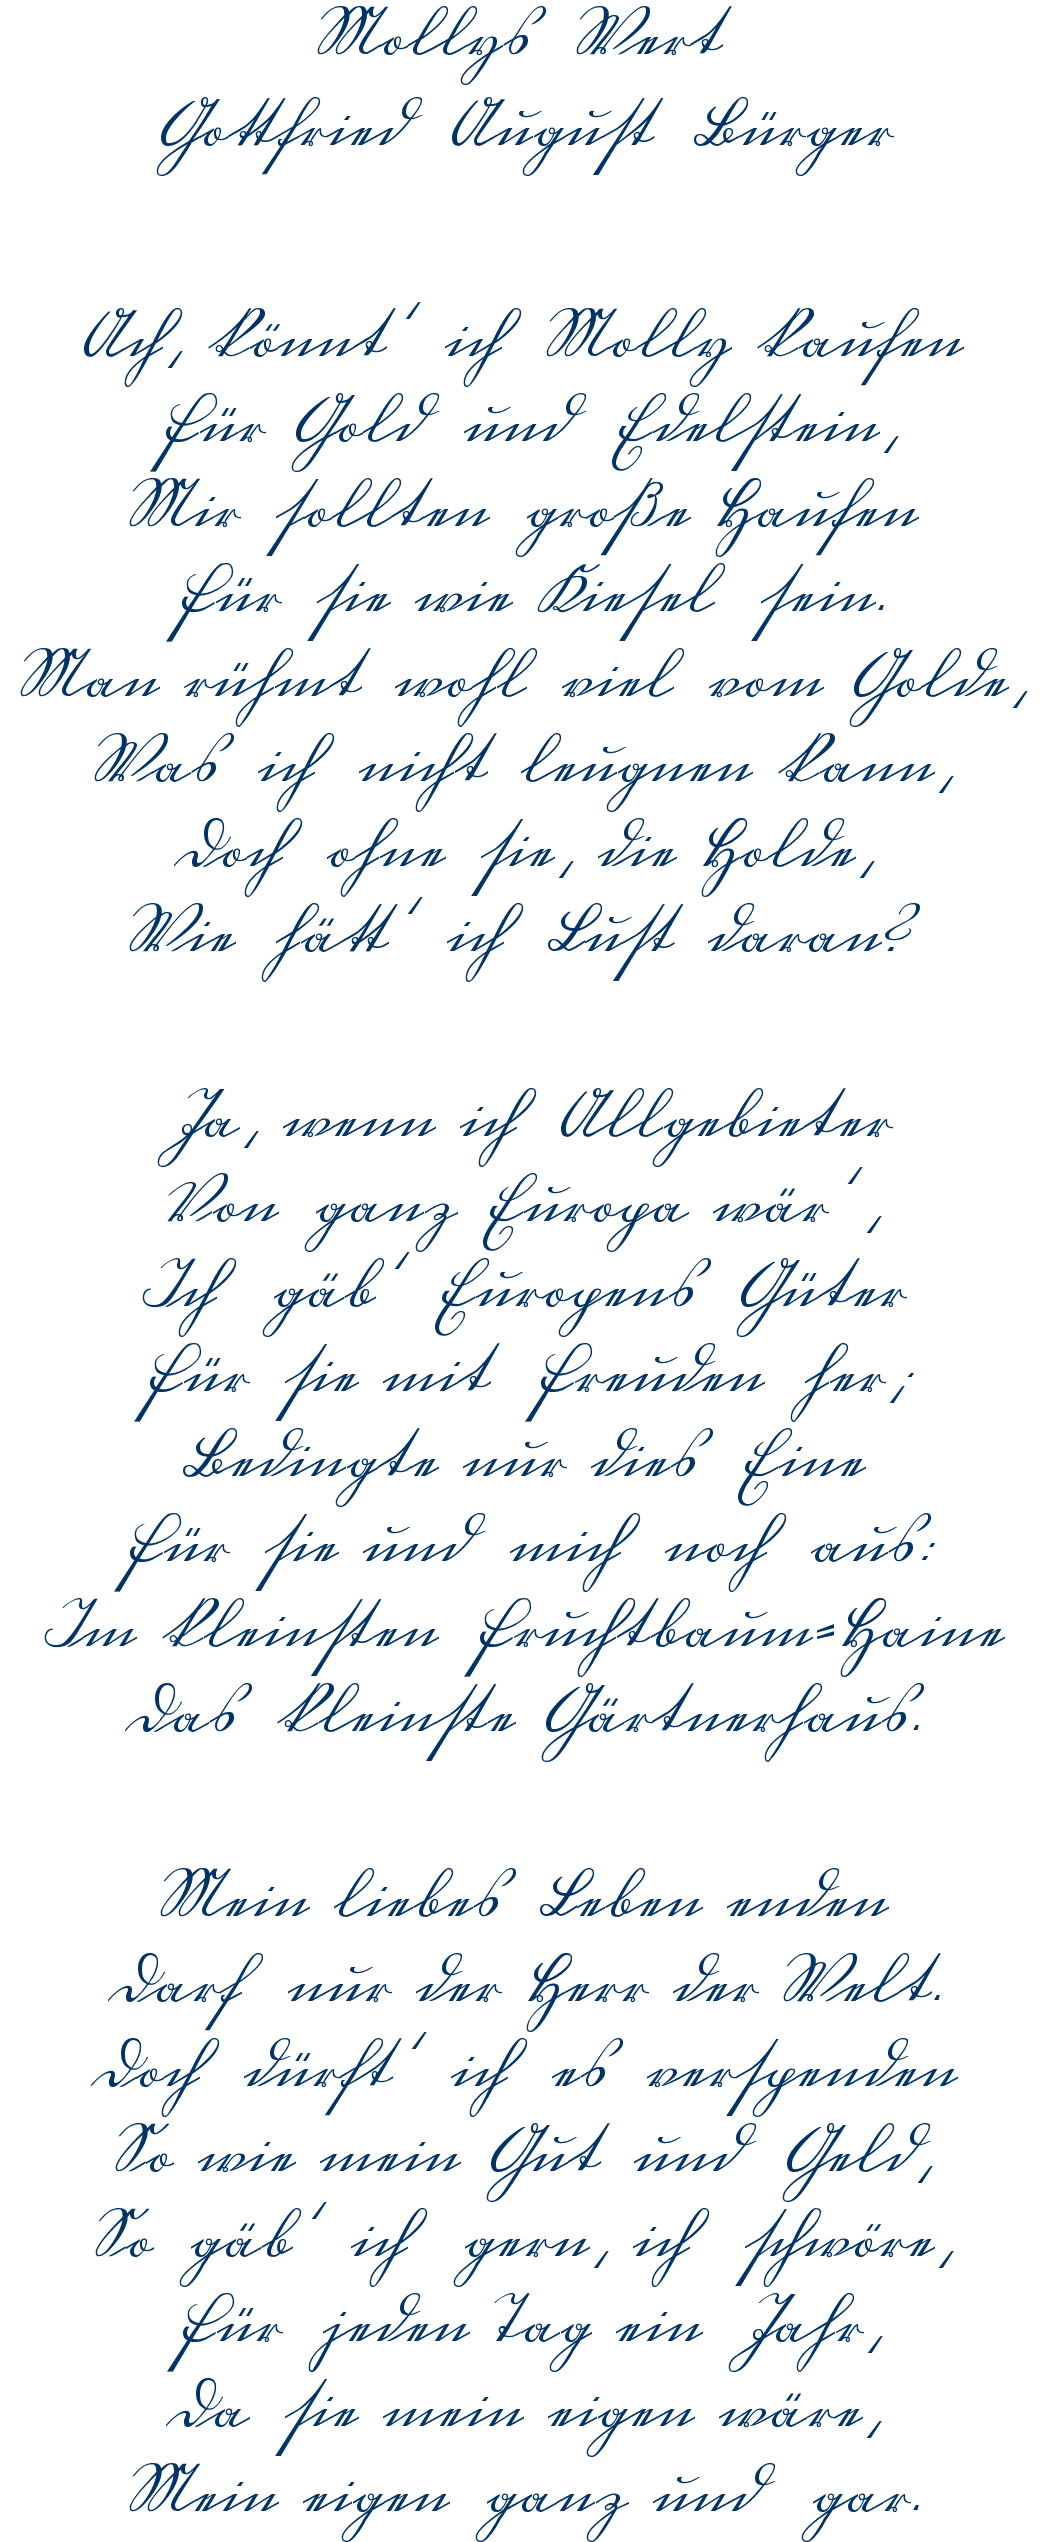 Mollys Wert
Gottfried August Bürger
Ach, könnt' ich Molly kaufen
Für Gold und Edelstein,
Mir sollten große Haufen
Für sie wie Kiesel sein.
Man rühmt wohl viel vom Golde,
Was ich nicht leugnen kann,
Doch ohne sie, die Holde,
Wie hätt' ich Lust daran?
Ja, wenn ich Allgebieter
Von ganz Europa wär',
Ich gäb' Europens Güter
Für sie mit Freuden her;
Bedingte nur dies Eine
Für sie und mich noch aus:
Im kleinsten Fruchtbaum=Haine
Das kleinste Gärtnerhaus.
Mein liebes Leben enden
Darf nur der Herr der Welt.
Doch dürft' ich es verspenden
So wie mein Gut und Geld,
So gäb' ich gern, ich schwöre,
Für jeden Tag ein Jahr,
Da sie mein eigen wäre,
Mein eigen ganz und gar.